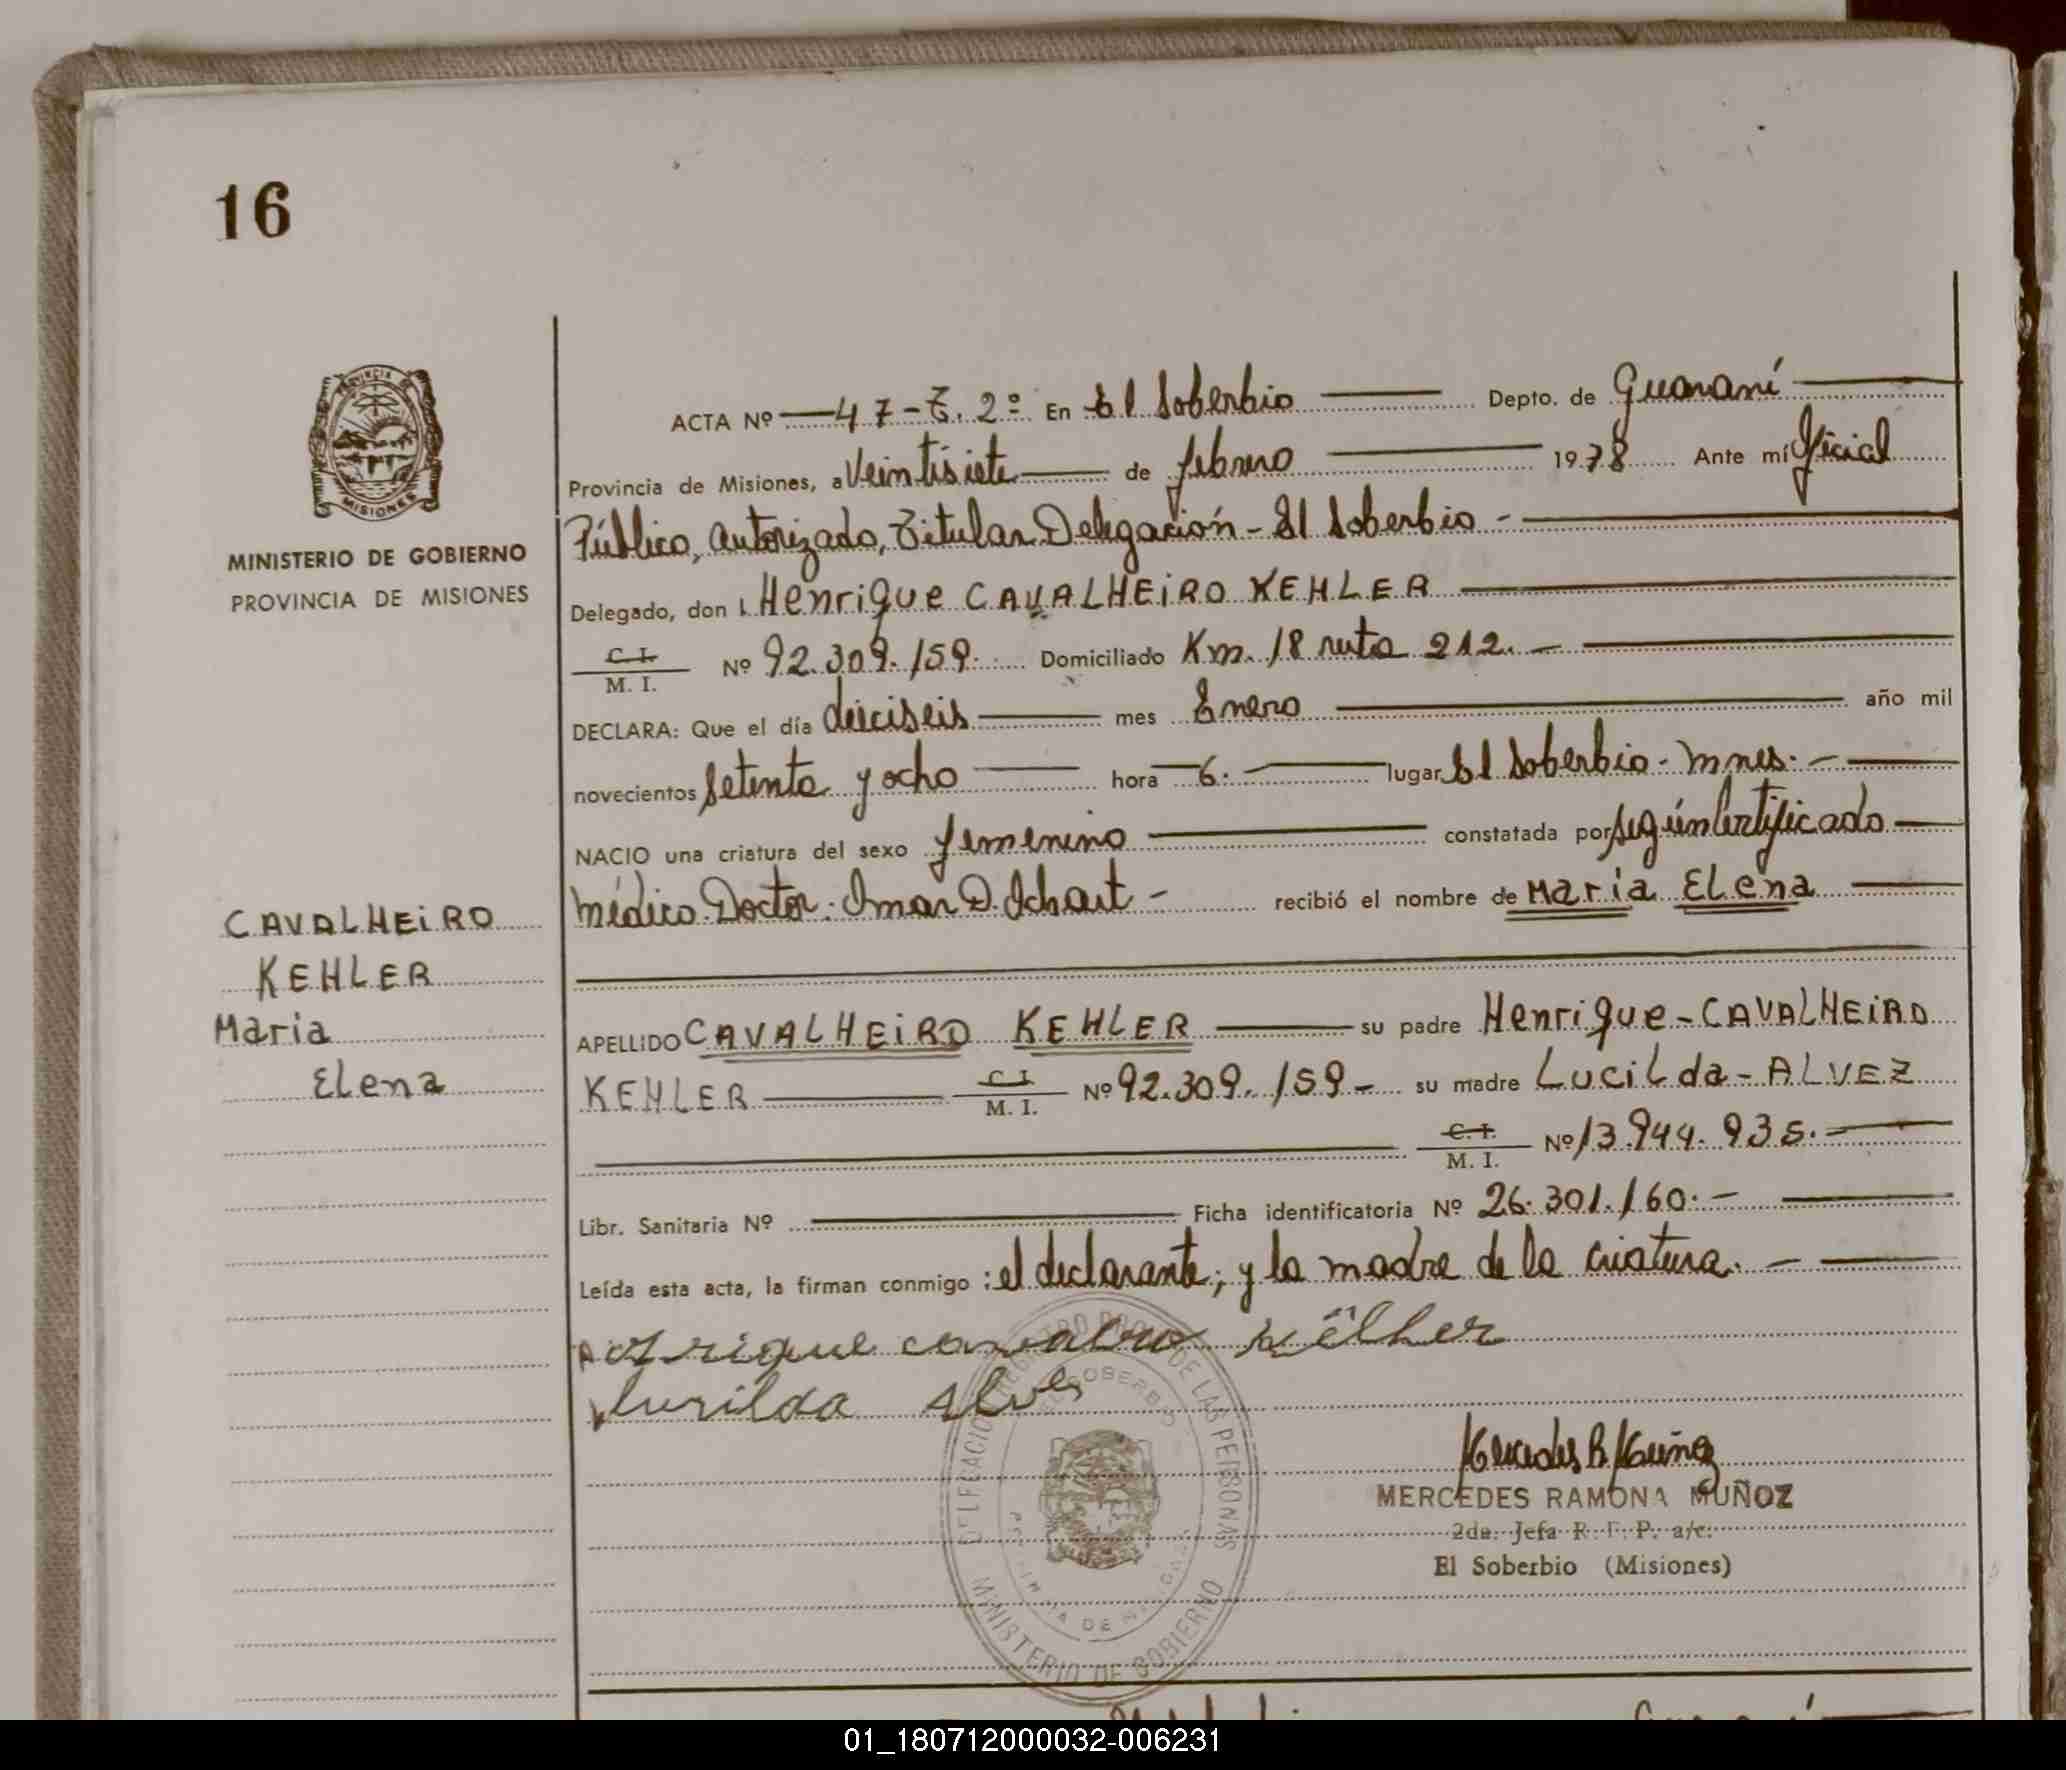 16
PROVINCIA DE
MISIONES
MINISTERIO DE GOBIERNO
PROVINCIA DE MISIONES
CAVALHEiRO
KEHLER
Maria
Elena
ACTA Nº 47-T. 2º En El Soberbio Depto. de Guaraní
Provincia de Misiones, a Veintisiete de febrero 1978 Ante mí Oficial
Público, autorizado, Titular Delegación - El Soberbio -
Delegado, don Henrique CAVALHEiRO KEHLER
C. I.
M. I. Nº 92.309.159. Domiciliado Km. 18 ruta 212. -
DECLARA: Que el día dieciseis mes Enero año mil
novecientos setenta y ocho hora 6. lugar El Soberbio - Mnes. -
NACIO una criatura del sexo femenino constatada por según Certificado
Médico Doctor. Omar D. - recibió el nombre de Maria Elena
APELLIDO CAVALHEiRO KEHLER su padre Henrique - CAVALHEiRO
KEHLER C. I.
M. I. Nº 92.309.159 - su madre LuciLda - ALVEZ
C. I.
M. I. Nº 13.944.935. -
Libr. Sanitaria Nº Ficha identificatoria Nº 26.301.160. -
Leída esta acta, la firman conmigo : el declarante, y la madre de la criatura. -
Këlher
Lusilda Alves
DELEGACION REGISTRO PROV. DE LAS PERSONAS
EL SOBERBIO
PROVINCIA DE MISIONES
MINISTERIO DE GOBIERNO
Mercedes R. Muñoz
MERCEDES RAMONA MUÑOZ
2da. Jefa R. P. a/c.
El Soberbio (Misiones)
01_180712000032-006231